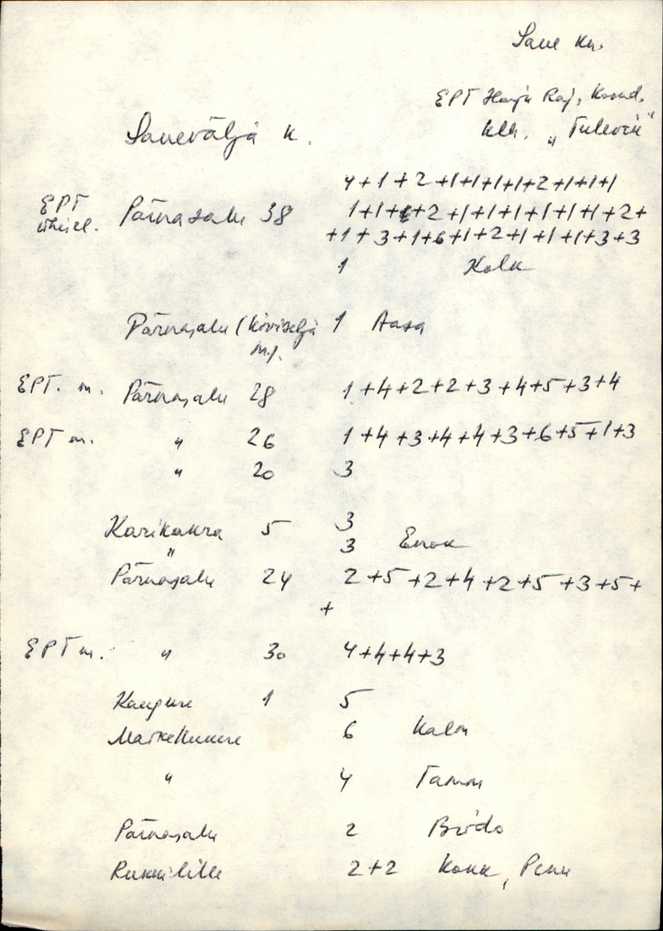 Saue kn.
EPT Harju Raj,
klh. „Tulevik"
Sauevälja k.
4+1+2+1+1+1+1+2+1+1+1
EPT Pärnasalu 38 1+1+2+1+1+1+1+1+1+2+
+1+3+1+6+1+2+1+1+1+3+3
1 Kolk
Pärnasalu ( 1 Aasa
EPT. m. Pärnasalu 28 1+4+2+2+3+4+5+3+4
EPT m. " 26 1+4+3+4+4+3+6+5+1+3
" 20 3
Karikakra 5 3
" 3
Pärnasalu 24 2+5+2+4+2+5+3+5+
+
EPT m. " 30 4+4+4+3
1 5
6 Kalm
" 4 Tamm
Pärnasalu 2
Rukkilille 2+2 Konk, Penu